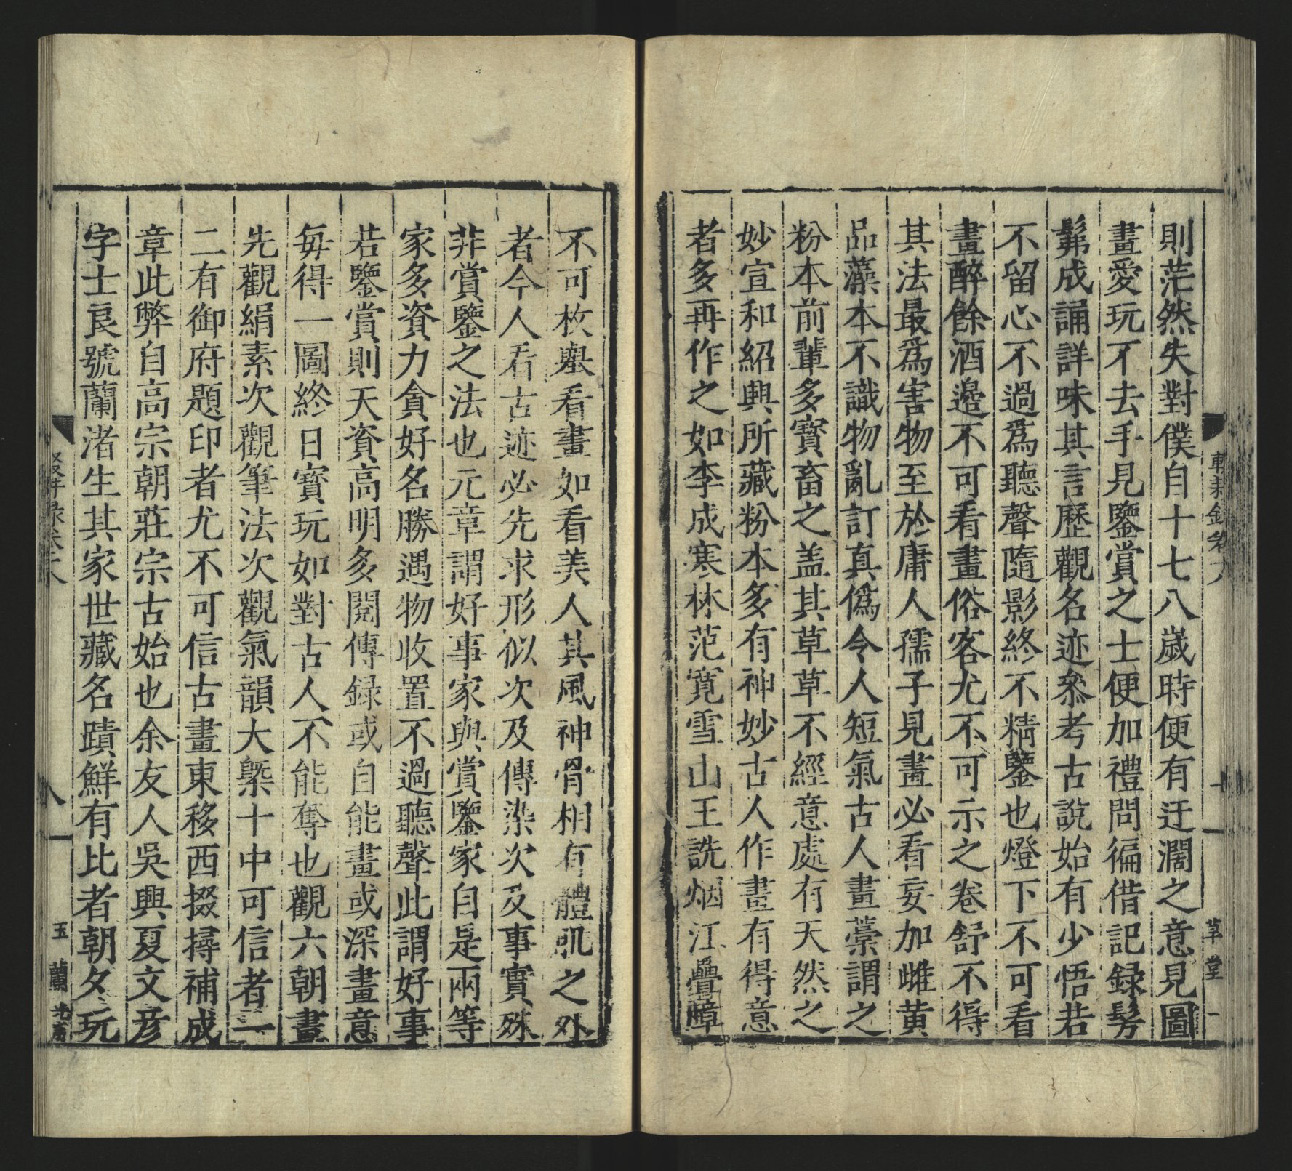 則茫然失對僕自十七八歲時便有迂濶之意見圖
畫愛玩不去手見鑒賞之士便加禮問徧借記録髣
髴成誦詳味其言歷觀名迹叅考古說始有少悟若
不留心不過爲聽聲隨影終不精鑒也燈下不可看
畫醉餘酒邊不可看畫俗客尤不可示之卷舒不得
其法最爲害物至於庸人孺子見畫必看妄加雌黄
品藻本不識物亂訂真僞令人短氣古人畫藁謂之
粉本前輩多寳畜之盖其草草不經意處有天然之
妙宣和紹興所藏粉本多有神妙古人作畫有得意
者多再作之如李成寒林范寛雪山王詵烟江疊嶂
不可枚舉看畫如看美人其風神骨相有體肌之外
者今人看古迹必先求形似次及傳染次及事實殊
非賞鑒之法也元章謂好事家與賞鑒家自是兩等
家多資力貪好名勝遇物收置不過聽聲此謂好事
若鑒賞則天資高明多閱傳録或自能畫或深畫意
每得一圖終日寳玩如對古人不能奪也觀六朝畫
先觀絹素次觀筆法次觀氣韻大槩十中可信者一
二有御府題印者尤不可信古畫東移西掇撏補成
章此弊自高宗朝莊宗古始也余友人吳興夏文彦
字士良號蘭渚生其家世藏名蹟鮮有比者朝夕玩
草堂
玉蘭